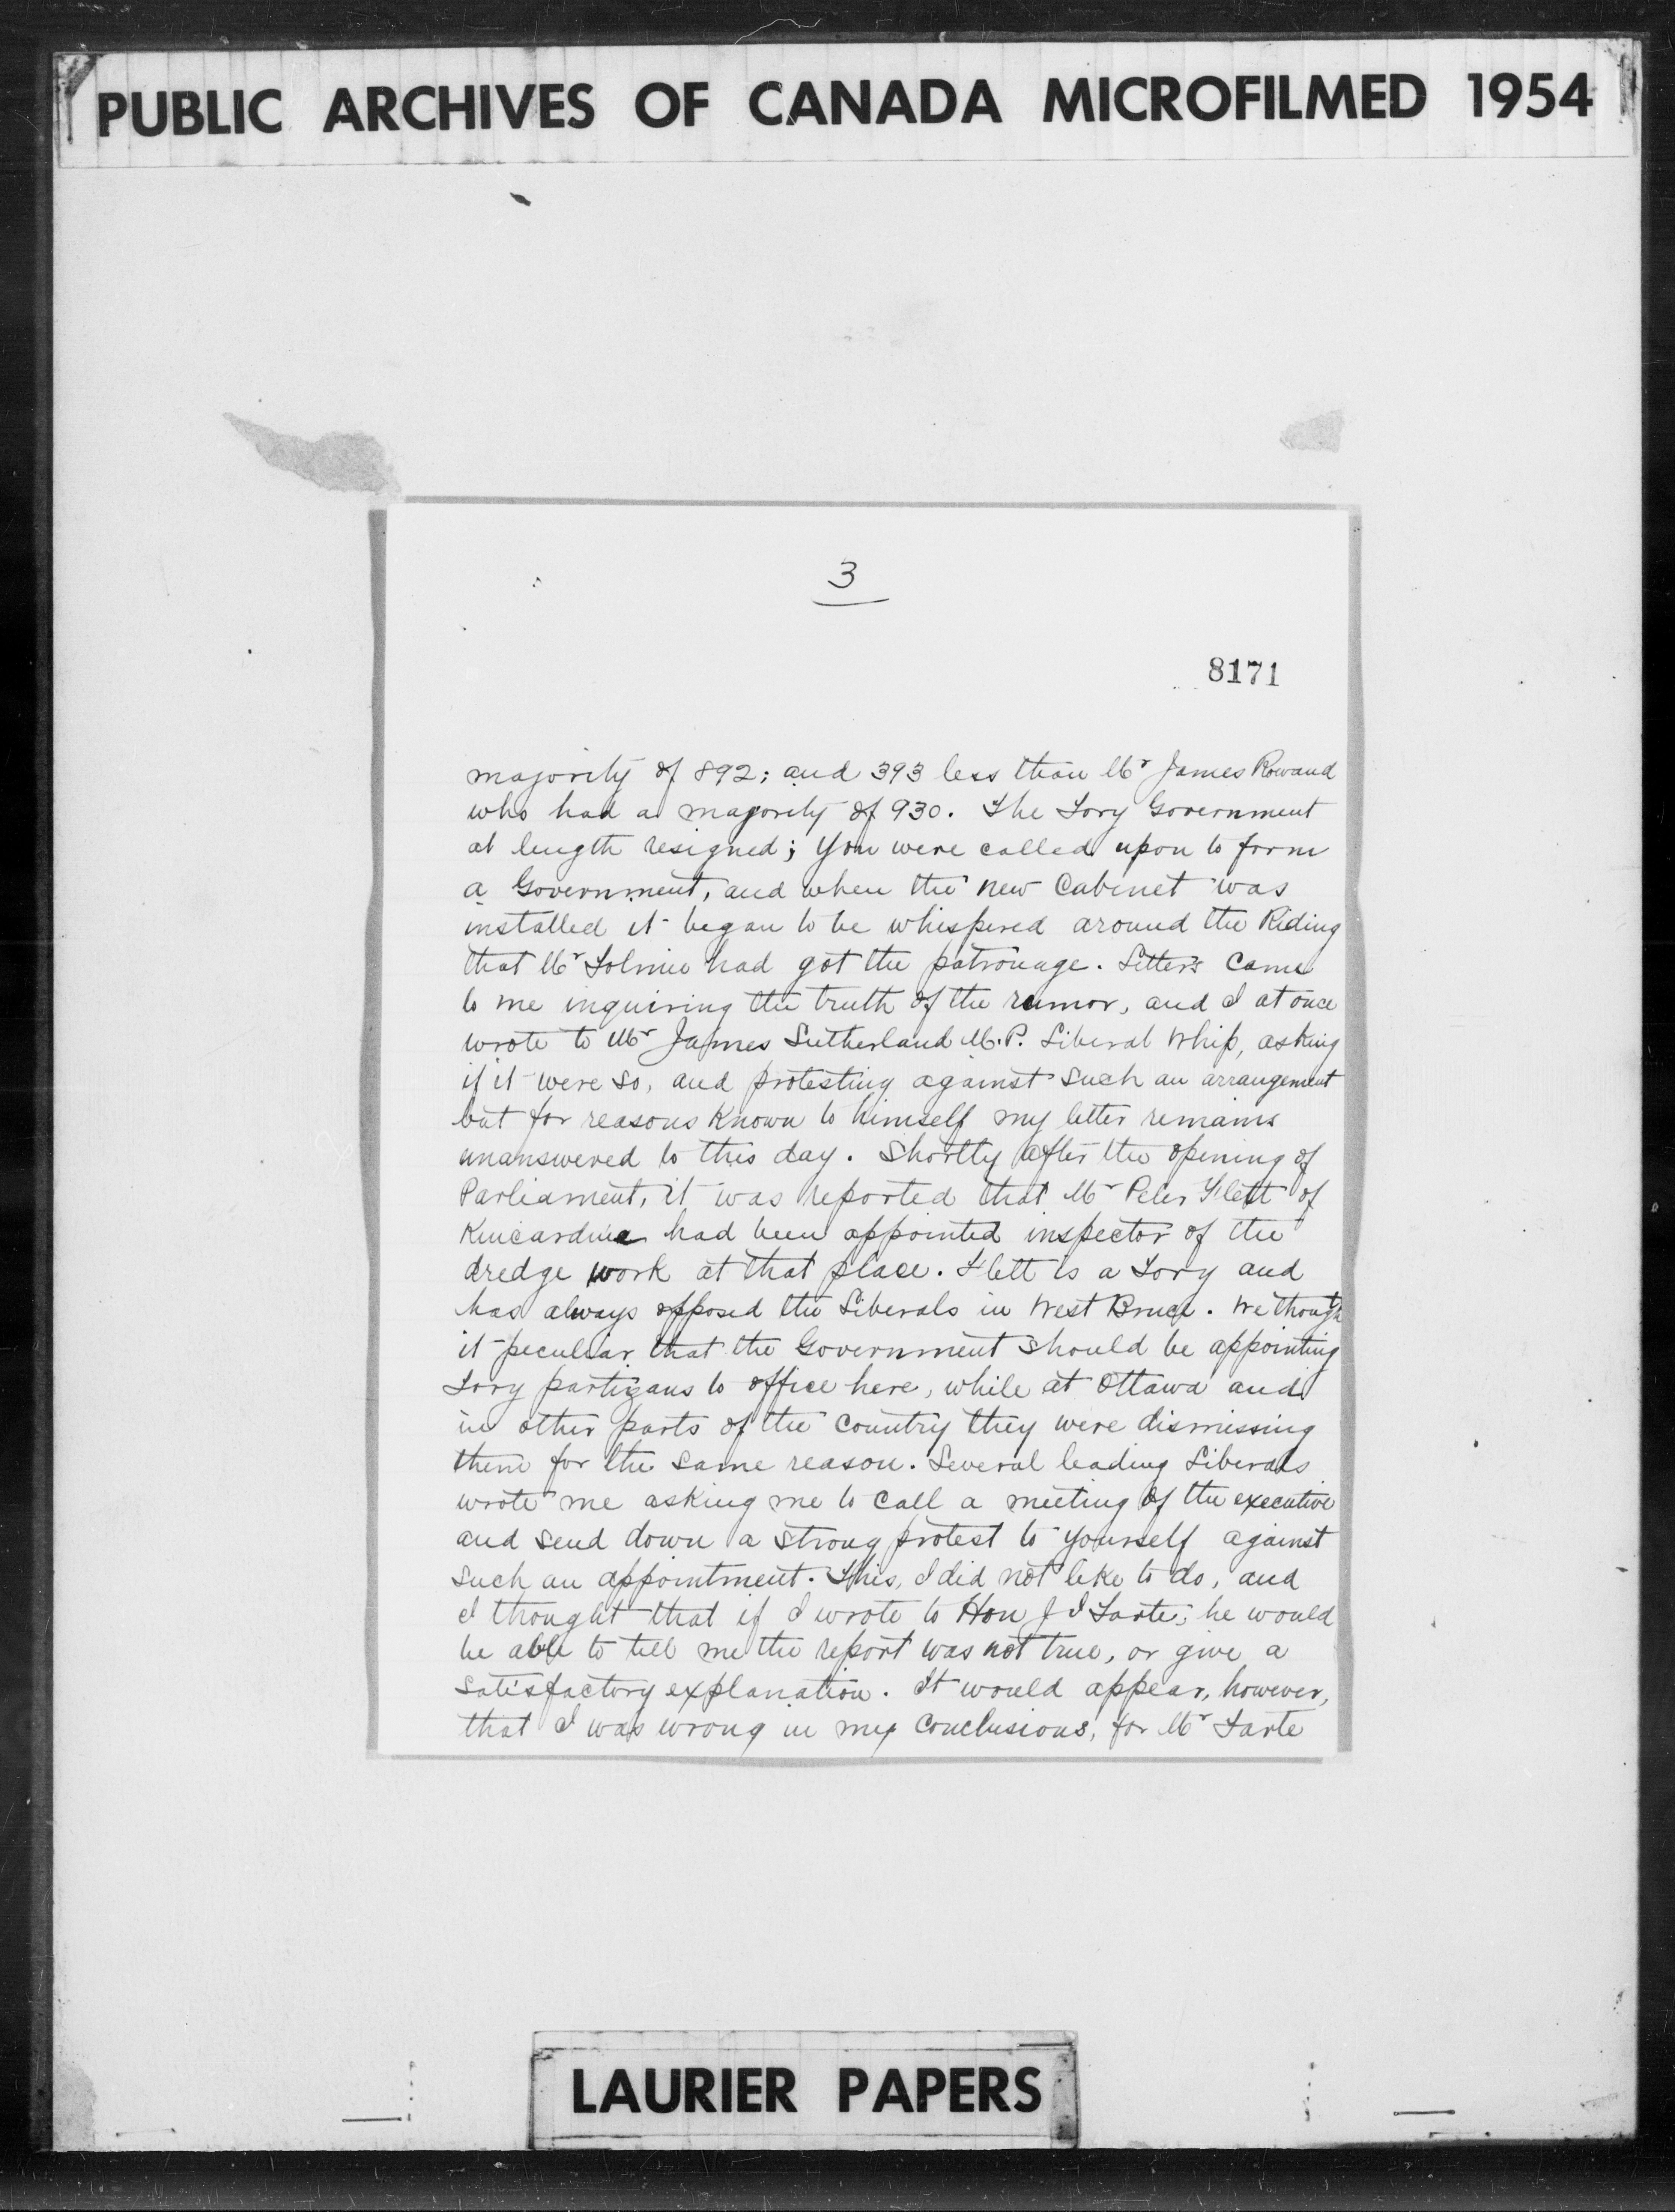 PUBLIC ARCHIVES OF CANADA MICROFILMED 1954
3
8171
majority of 892; and 393 less than Mr James Rowand
who had a majority of 930. The Tory Government
at length resigned; you were called upon to form
a Government, and when the new Cabinet was
installed it began to be whispered around the Riding
that Mr Tolmie had got the patronage. Letters came
to me inquiring the truth of the rumor, and I at once
wrote to Mr James Sutherland M.P. Liberal Whip, asking
if it were so, and protesting against such an arrangement
but for reasons known to himself my letter remains
unanswered to this day. Shortly after the opening of
Parliament, it was reported that Mr Peter Flett of
Kincardine had been appointed inspector of the
dredge work at that place. Flett is a Tory and
has always opposed the Liberals in West Bruce. We though
it peculiar that the Government should be appointing
Tory partizans to office here, while at Ottawa and
in other parts of the country they were dismissing
them for the same reason. Several leading Liberals
wrote me asking me to call a meeting of the executive
and send down a strong protest to yourself against
such an appointment. This, I did not like to do, and
I thought that if I wrote to Hon J I Tarte, he would
be able to tell me the report was not true, or give a
satisfactory explanation. It would appear, however,
that I was wrong in my conclusions, for Mr Tarte
LAURIER PAPERS